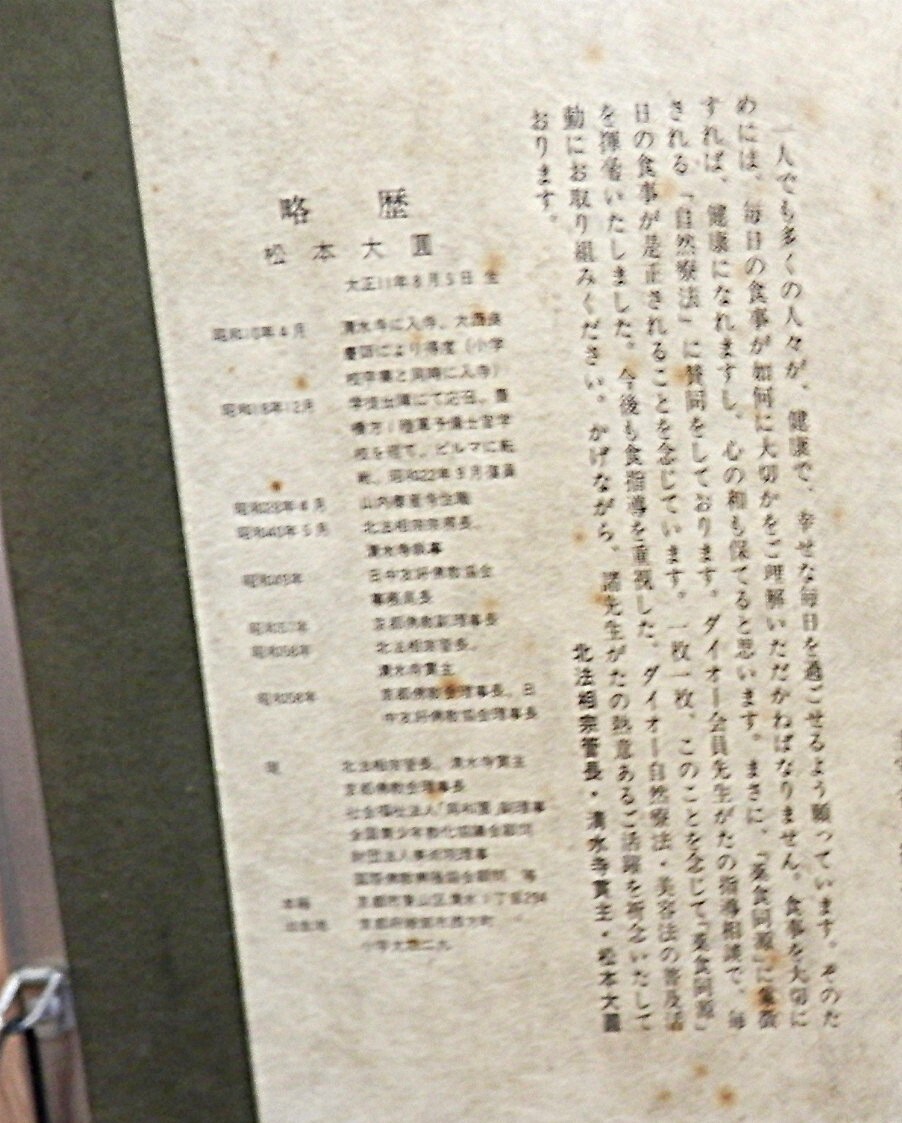 一人でも多くの人々が、健康で、幸せな毎日を過ごせるよう願っています。そのた
めには、毎日の食事が如何に大切かをご理解いただかねばなりません。食事を大切に
すれば、健康になれますし、心の和も保てると思います。まさに、『薬食同源』に象徴
される「自然療法」に賛同をしております。ダイオー会員先生がたの指導相談で、毎
日の食事が是正されることを念じています。一枚一枚、このことを念じて『薬食同源』
を揮毫いたしました。今後も食指導を重視した、ダイオー自然療法・美容法の普及活
動にお取り組みください。かげながら、諸先生がたの熱意あるご活躍を祈念いたして
おります。
北法相宗管長・清水寺貫主・松本大圓
略 歴
松本大圓
大正11年8月5日 生
昭和10年4月 清水寺に入寺、大西良
慶師により得度(小学
校卒業と同時に入寺)
昭和18年12月 学徒出陣にて応召、豊
橋方1陸軍予備士官学
校を経て、ビルマに転
戦、昭和22年9月復員
昭和28年4月 山内
昭和40年5月 北法相宗宗務長、
清水寺執事
昭和49年 日中友好佛教協会
事務局長
昭和57年 京都佛教副理事長
昭和58年 北法相宗管長、
清水寺貫主
昭和58年 京都佛教会理事長、日
中友好佛教協会理事長
現 北法相宗管長、清水寺貫主
京都佛教会理事長
社会福祉法人「同和園」副理事
全国青少年教化協議会顧問
財団法人美術院理事
国際佛教興隆協会顧問 等
本籍 京都市東山区清水1丁目294
出生地 京都府綾部市西方町
小字大